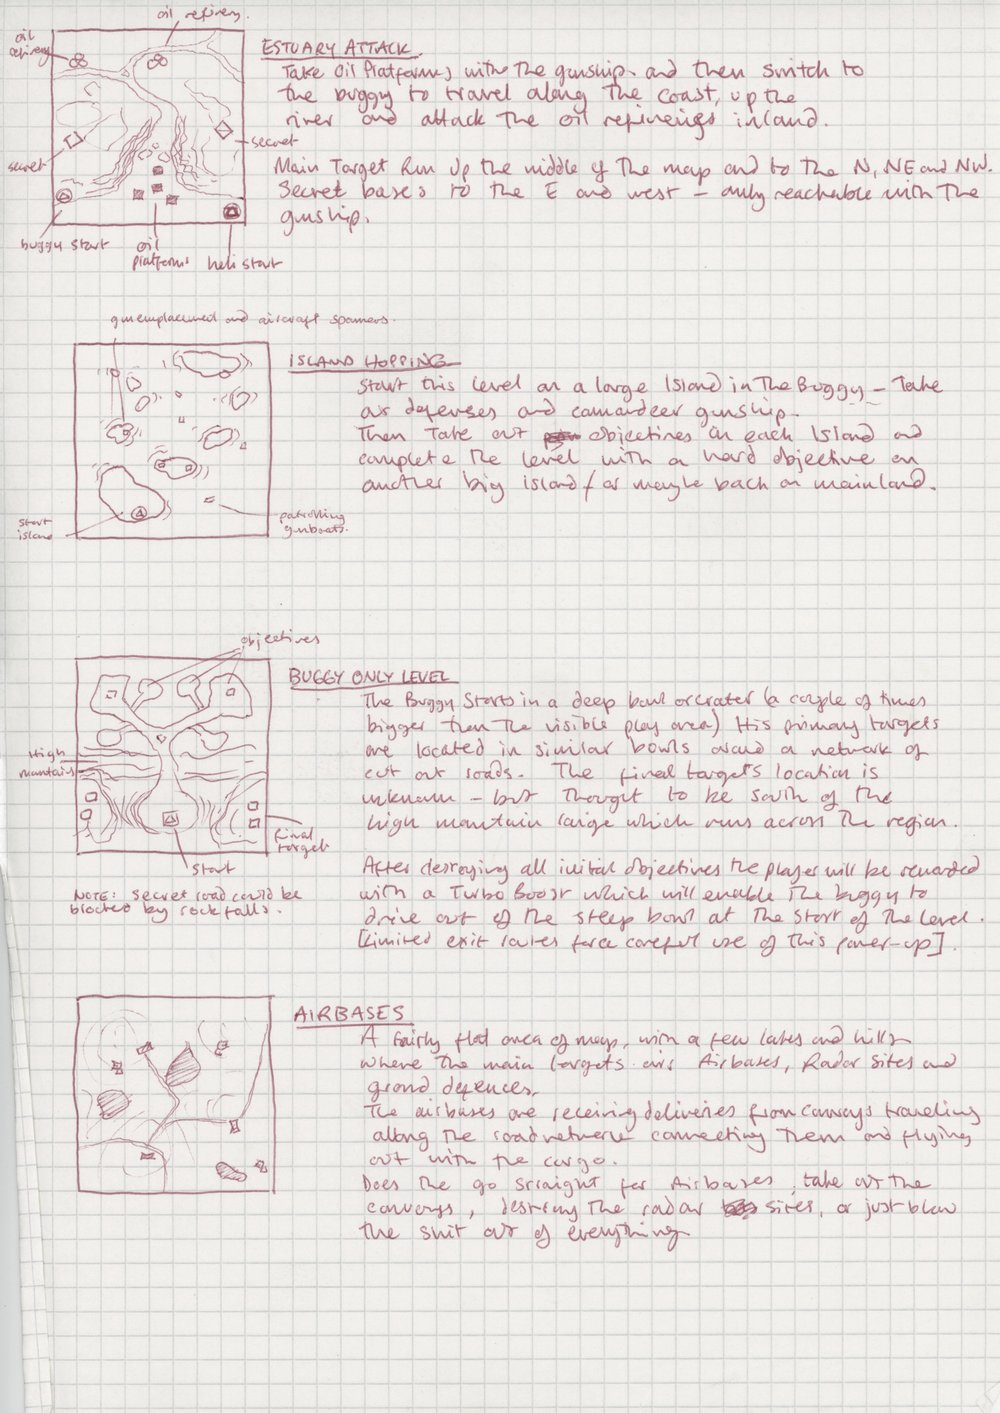 oil refinery.
oil
refinery
ESTUARY ATTACK
Take Oil Platforms with the gunship and then switch to
the buggy to travel along the coast, up the
river and attack the oil refineries inland.
secret
secret
Main Target Run Up the middle of the map and to the N, NE and NW.
Secret bases to the E and west – only reachable with the
gunship.
buggy start
oil
platforms
heli start
gunemplacement and aircraft spawners.
ISLAND HOPPING
Start this level on a large Island in the Buggy – Take
out defenses and comandeer gunship.
Then Take out objectives on each Island and
complete the level with a hard objective on
another big island / or maybe back on mainland.
start
island
patrolling
gunboats.
objectives
BUGGY ONLY LEVEL
The Buggy Starts in a deep bowl or crater (a couple of times
bigger then the visible play area) His primary targets
are located in similar bowls around a network of
cut out roads. The final targets location is
unknown – but thought to be south of the
high mountain range which runs across the region.
High
mountains
final
target
start
NOTE: secret road could be
blocked by rock falls.
After destroying all initial objectives the player will be rewarded
with a Turbo Boost which will enable the buggy to
drive out of the steep bowl at the start of the level.
[Limited exit routes force careful use of this power-up].
AIRBASES
A fairly flat area of map, with a few lakes and hills
where the main targets are Airbases, Radar Sites and
ground defences.
The airbases are receiving deliveries from convoys traveling
along the road network connecting them and flying
out with the cargo.
Does the go straight for Airbases, take out the
convoys, destroy the radar sites, or just blow
the shit out of everything